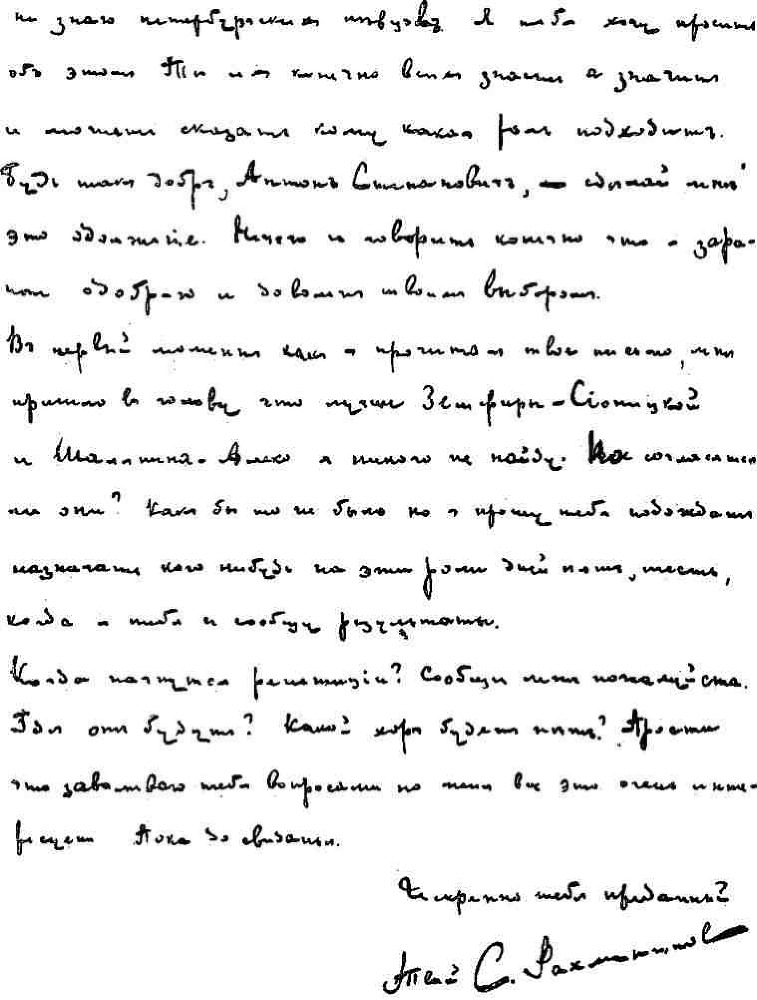 не знаю петербургских пѣвцовъ. Я тебя хочу просить
объ этомъ Ты их конечно всѣхъ знаешь а значитъ
и можешь сказать кому какая роль подходитъ.
Будь такъ добръ, Антонъ Степановичъ, – сдѣлай мнѣ
это одолженіе. Нечего и говорить конечно что я зара-
нѣе одобряю и доволенъ твоимъ выборомъ.
Въ первый моментъ какъ я прочиталъ твое письмо, мнѣ
пришло въ голову что лучше Земфиры – Сіоницкой
и Шаляпина – Алеко я никого не найду. Но согласятся
ли они? Какъ бы то не было но я прошу тебя подождать
назначать кого нибудь на эти роли дней пять, шесть,
когда я тебѣ и сообщу результаты.
Когда начнутся репетиціи? Сообщи мнѣ пожалуйста.
Гдѣ онѣ будутъ? Какой хоръ будетъ пѣть? Прости
что заваливаю тебя вопросами но меня все это очень инте-
ресуетъ Пока до свиданья.
Искренно тебѣ преданный
Твой С. Рахманиновъ